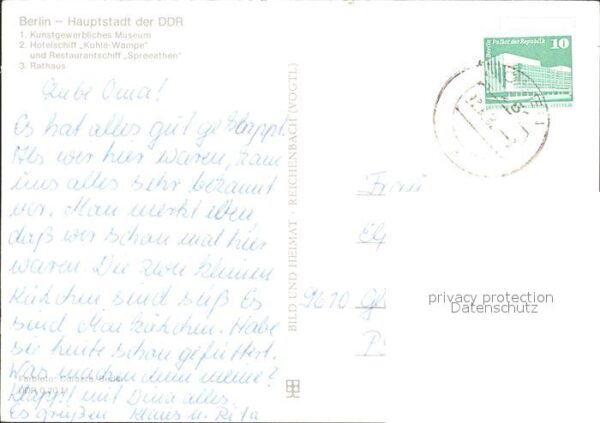 Berlin – Hauptstadt der DDR
1. Kunstgewerbliches Museum
2. Hotelschiff „Kuhle-Wampe"
und Restaurantschiff „Spreeathen"
3. Rathaus
Liebe Oma!
Es hat alles gut geklappt.
Als wir hier waren, kam
uns alles sehr bekannt
vor. Man merkt eben
daß wir schon mal hier
waren. Die zwei kleinen
Kätzchen sind süß Es
sind Maikätzchen. Habe
sie heute schon gefüttert.
Was machen denn meine?
Klappt mit Dina alles.
Es grüßen Klaus u. Rita
BILD UND HEIMAT · REICHENBACH (VOGTL)
Berlin, Palast der Republik
10
Frau
privacy protection
Datenschutz